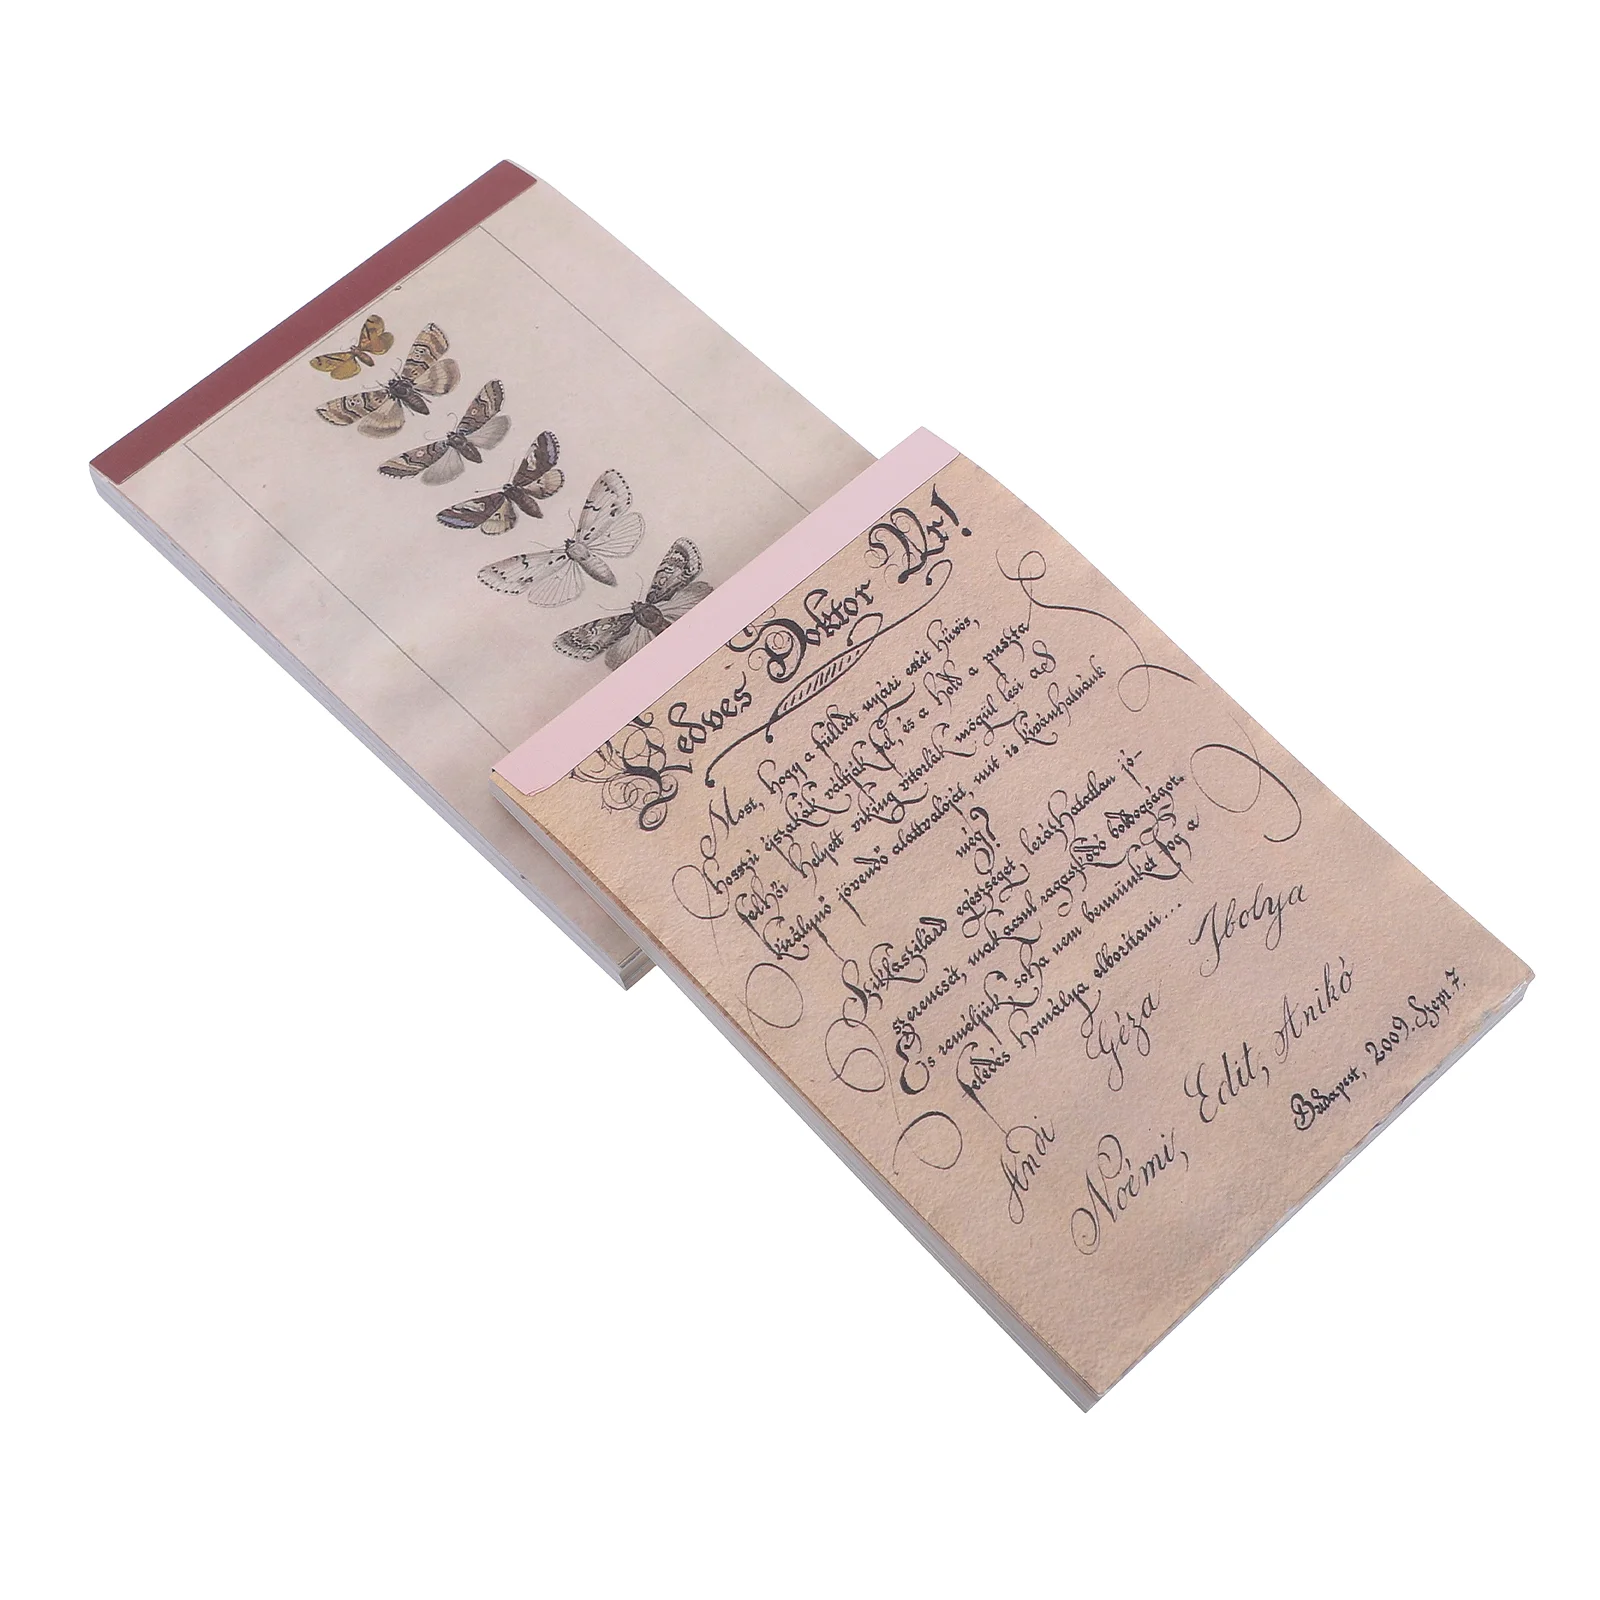 Kedves Doktor Úr!
Most, hogy a fülledt nyári estét hűvös,
hosszú éjszakák váltják fel, és a hold a puszta
felhői helyett viking vitorlák mögül lesi az
királynő jövendő alattvalóját, mit is kívánhatnánk
még?
Sziklaszilárd egészséget, lerázhatatlan jó-
szerencsét, makacsul ragaszkodó boldogságot.
És reméljük soha nem bennünket fog a
feledés homálya elborítani...
Ibolya
Géza
Andi
Noémi, Edit, Anikó
Budapest, 2009. Szept. 7.